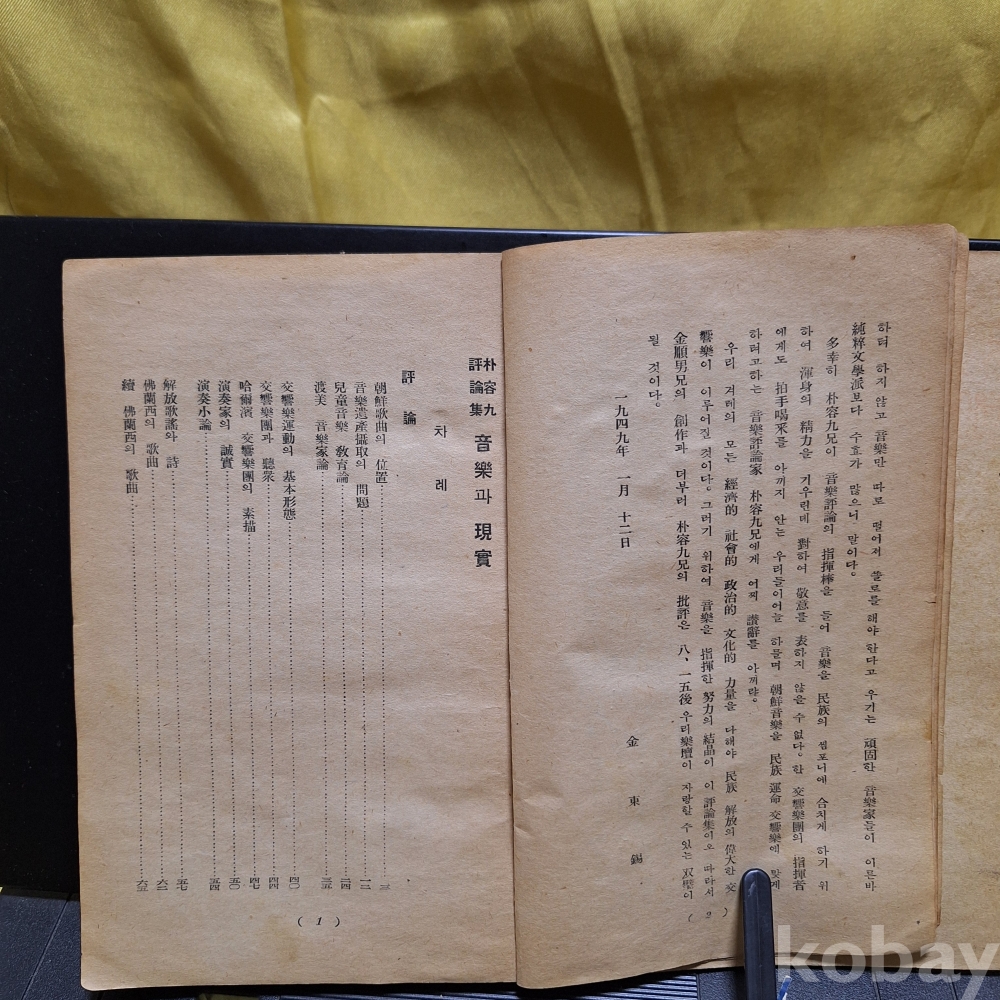 하려 하지 않고 音樂만 따로 떨어저 똘로를 해야 한다고 우기는 頑固한 音樂家들이 이른바
純粹文學派보다 수효가 많으니 말이다。
多幸히 朴容九兄이 音樂評論의 指揮棒을 들어 音樂을 民族의 씸포니에 合치게 하기 위
하여 渾身의 精力을 기우린데 對하여 敬意를 表하지 않을 수 없다。한 交響樂團의 指揮者
에게도 拍手喝采를 아끼지 안는 우리들이어늘 하물며 朝鮮音樂을 民族 運命 交響樂에 맞게
하려고하는 音樂評論家 朴容九兄에게 어찌 讚辭를 아끼랴。
우리 겨레의 모든 經濟的 社會的 政治的 文化的 力量을 다해야 民族 解放의 偉大한 交
響樂이 이루어질 것이다。그러기 위하여 音樂을 指揮한 努力의 結晶이 이 評論集이오 따라서
金順男兄의 創作과 더부러 朴容九兄의 批評은 八、一五後 우리樂壇이 자랑할 수 있는 双璧이
될 것이다。
一九四九年 一月 十二日
金東錫
( 2 )
朴容九
評論集 音樂과 現實
차례
評論
朝鮮歌曲의 位置……三
音樂遺產攝取의 問題……一二
兒童音樂 敎育論……一四
渡美 音樂家論……三五
交響樂運動의 基本形態……四〇
交響樂團과 聽衆……四四
哈爾濱 交響樂團의 素描……四七
演奏家의 誠實……五〇
演奏小論……五四
解放歌謠와 詩……五七
佛蘭西의 歌曲……六二
續 佛蘭西의 歌曲……六五
( 1 )
kobay